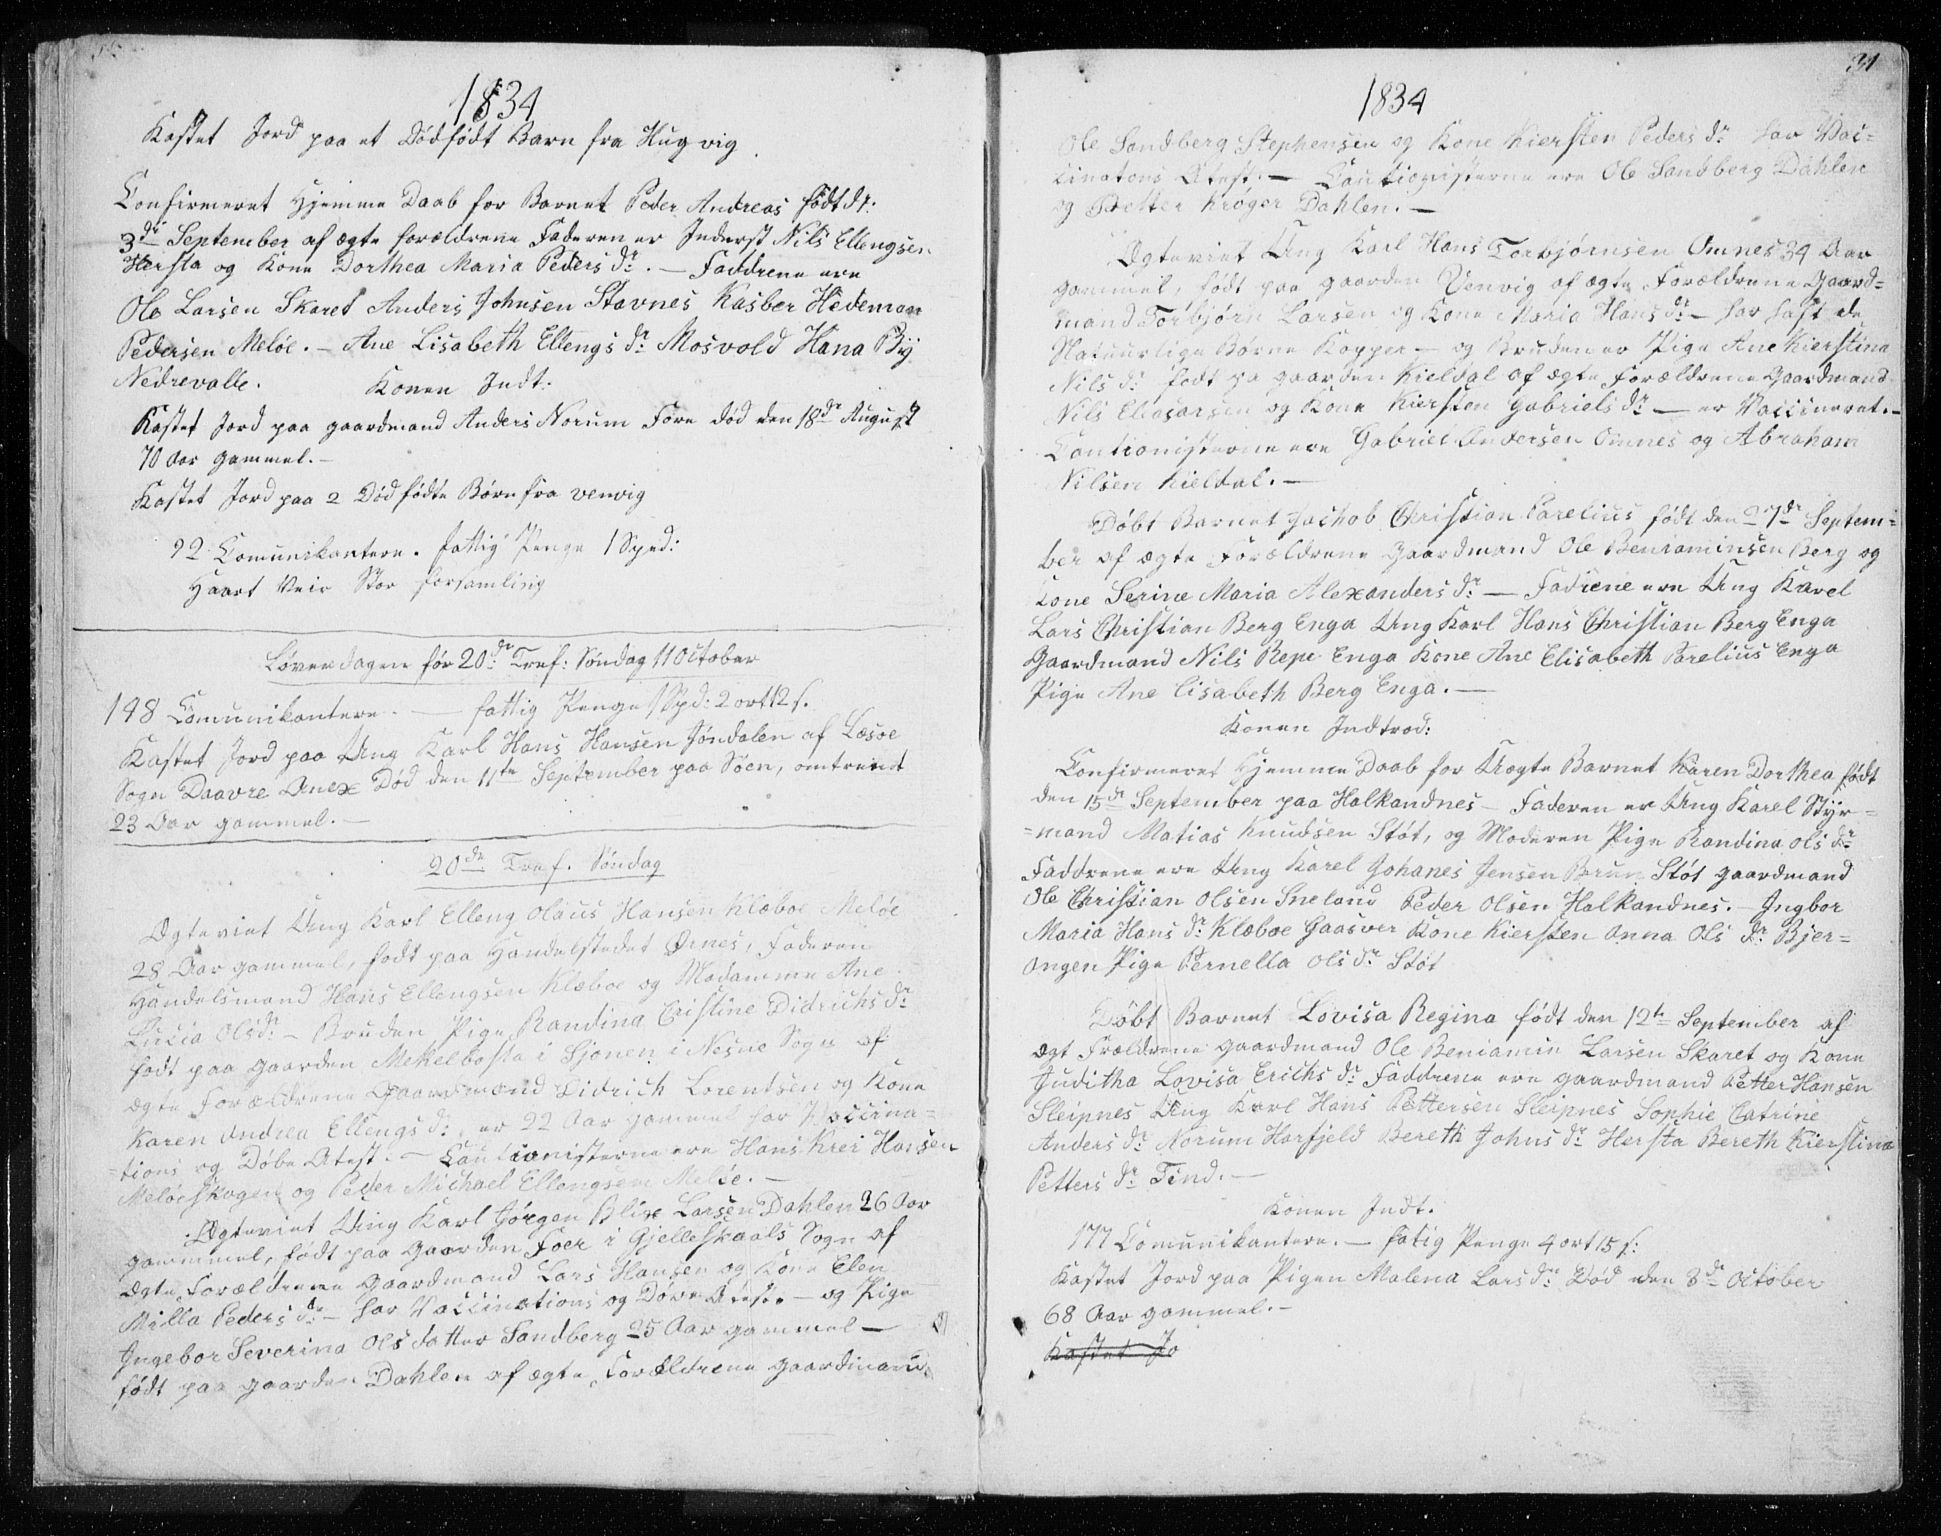 1834
Kastet Jord paa et Dödfödt Barn fra Hugvig
Confirmeret Hjemme Daab for Barnet Peder Andreas födt d:
3de September af ægte forældrene Faderen er Inderst Nils Ellengsen
Hersta og Kone Dorthea Maria Peders dr. — Faddrene ere
Ole Larsen Skaret Anders Johnsen Stavnes Kasber Hedeman
Pedersen Melöe. — Ane Lisabeth Ellengs dr Mosvold Hana By
Nedrevalle. Konen Indt:
Kastet Jord paa gaardmand Anders Norum Fore död den 18de August
70 Aar gammel. —
Kastet Jord paa 2 Död födte Börn fra venvig
92 Comunikantere. fattig Penge 1 Spd:
Haart Veir Stor forsamling
Löverdagen för 20de Tref: Söndag 11 October
148 Comunikantere. — fattig Penge 1 Spd: 2 ort 12 s.
Kastet Jord paa Ung Karl Hans Hansen Jöndalen af Lesöe
Sogn Daavre Anex Död den 11te September paa Söen, omtrent
23 Aar gammel. —
20de Tref. Söndag
Ægteviet Ung Karl Elleng Olaus Hansen Klæboe Melöe
28 Aar gammel, födt paa Handelstedet Ørnes, Faderen
Handelsmand Hans Ellengsen Klæboe og Madamme Ane
Lucia Olsdr: — Bruden Pige Randina Cristine Didrichs dr
födt paa gaarden Mekelbosta i Sjonen i Nesne Sogn af
ægte Forældrene Gaardmand Didrich Lorentsen og Kone
Karen Andrea Ellengs dr: er 22 Aar gammel har Vaccina=
=tions og Döbe Atest. — Cautionisterne ere Hans Krei Hansen
Melöeskogen og Peder Michael Ellengsen Melöe. —
Ægteviet Ung Karl Jörgen Blix Larsen Dahlen 26 Aar
gammel, födt paa Gaarden Foer i Gjelleskaals Sogn af
ægte Forældrene Gaardmand Lars Hansen og Kone Elen
Milla Peders dr — har Vaccinations og Döve Atest. — og Pige
Ingebor Severina Olsdatter Sandberg 25 Aar gammel —
födt paa gaarden Dahlen af ægte Forældrene gaardmand
31
1834
Ole Sandberg Stephensen og Kone Kiersten Peders dr har Vac=
cinations Atest. — Cautionisterne ere Ole Sandberg Dahlen
og Petter Kröger Dahlen. —
Ægteviet Ung Karl Hans Torbjörnsen Omnes 34 Aar
gammel, födt paa gaarden Venvig af ægte Forældrene Gaard=
mand Torbjörn Larsen og Kone Maria Hans dr — har haft de
Natuurlige Börne Kopper — og Bruden er Pige Ane Kierstina
Nils dr födt pa gaarden Kieldal af ægte forældrene Gaardmand
Nils Eliasarsen og Kone Kiersten Gabriels dr — er Vaccineret. —
Cautionisterne ere Gabriel Andersen Omnes og Abraham
Nilsen Kieldal. —
Döbt Barnet Jachob Christian Parelius födt den 27de Septem=
ber af ægte Forældrene Gaardmand Ole Beniaminsen Berg og
Kone Serine Maria Alexanders dr — Fadrene ere Ung Karel
Lars Christian Berg Enga Ung Karl Hans Christian Berg Enga
Gaardmand Nils Repe Enga Kone Ane Elisabeth Parelius Enga
Pige Ane Lisabeth Berg Enga. —
Konen Indtrod:
Confirmeret Hjemme Daab for Uægte Barnet Karen Dorthea födt
den 15de September paa Halkandnes — Faderen er Ung Karel Styr=
=mand Matias Knudsen Stöt, og Moderen Pige Randina Ols dr
Faddrene ere Ung Karel Johanes Jensen Brun Stöt gaardmand
Ole Christian Olsen Sneland Peder Olsen Halkandnes. — Ingbor
Maria Hans dr Klæboe Gaasver Kone Kiersten Anna Ols dr Bjer=
angen Pige Pernella Ols dr Stöt
Döbt Barnet Lovisa Regina födt den 12te September af
ægt Frældrene gaardmand Ole Beniamin Larsen Skaret og Kone
Juditha Lovisa Erichs dr Faddrene ere gaardmand Petter Hansen
Sleipnes Ung Karl Hans Pettersen Sleipnes Sophie Catrine
Anders dr Norum Harfjeld Bereth Johns dr Hersta Bereth Kierstina
Petters dr Tind. —
Konen Indt.
177 Comunikantere. — fatig Penge 4 ort 15 s:
Kastet Jord paa Pigen Malena Lars dr Död den 8de October
68 Aar gammel. —
Kastet Jo